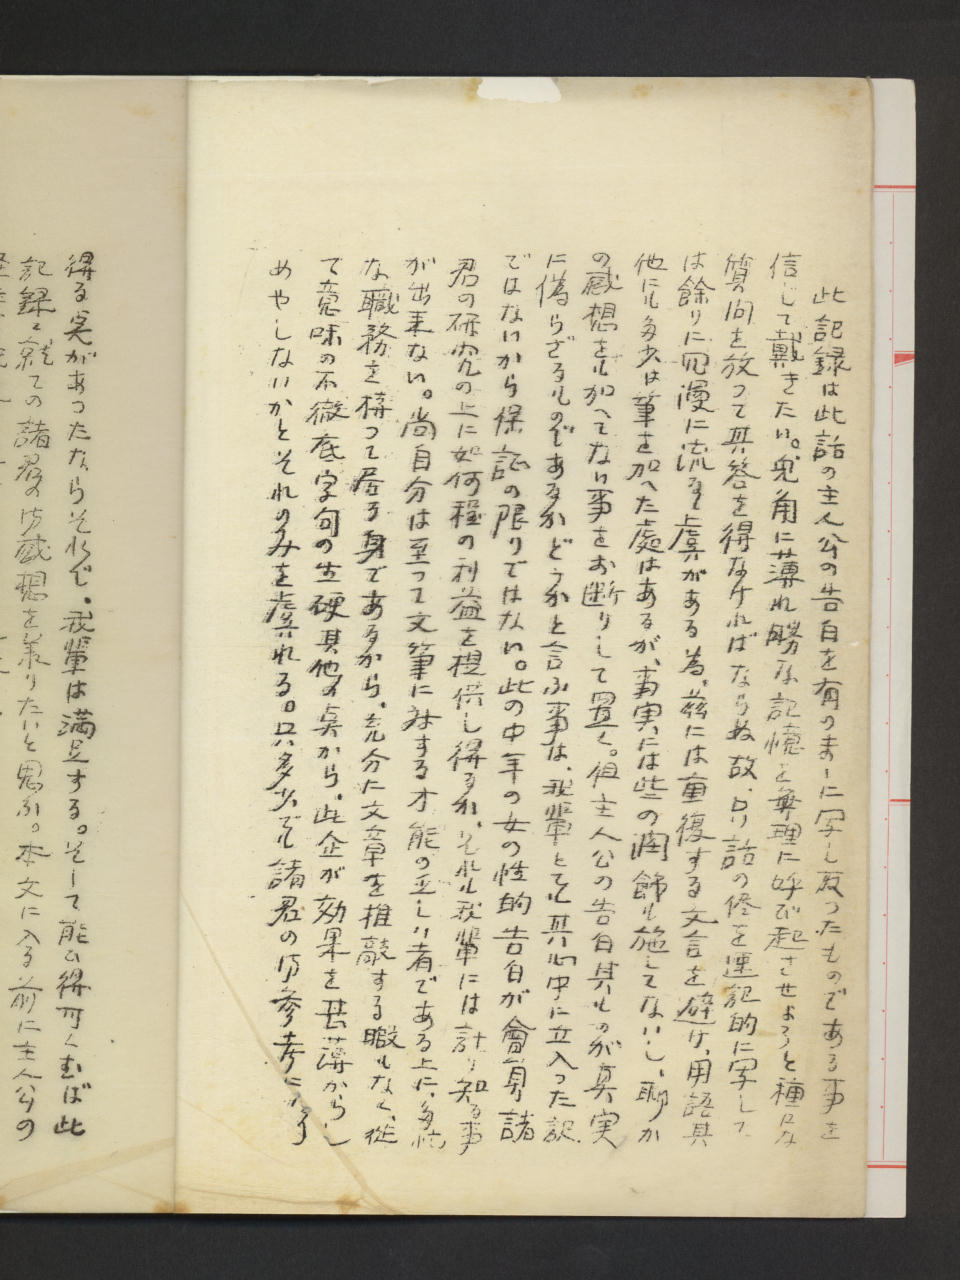 此記録は此話の主人公の告白を有りまゝに写し取つたものである事を
信じて戴きたい。兎角に薄れ勝な記憶を無理に呼び起させようと種々な
質問を放つて其答を得なければならぬ故、口話の儘を速記的に写して
は餘りに冗漫に流るゝ虞がある為、茲には重復する文言を避け、用語其
他にも多少は筆を加へた處はあるが、事実には些の潤飾も施してないし、聊か
の感想をも加へてない事をお断りして置く。但主人公の告白其ものが真実
に偽らざるものであるかどうかと言ふ事は、我輩とても其心中に立入つた訳
ではないから保証の限りではない。此の中年の女の性的告白が會員諸
君の研究の上に如何程の利益を提供し得るか、それも我輩には計り知る事
が出来ない。尚自分は至つて文筆に対する才能の乏しい者である上に、多忙
な職務を持つて居る身であるから、充分た文章を推敲する暇もなく、従
て意味の不徹底字句の生硬其他の点から、此企が効果を甚薄からし
めやしないかとそれのみを虞れる。只多少でも諸君の御参考になり
得る実があつたならそれで、我輩は満足する。そして能ふ得可くむば此
記録に就ての諸君の御感想を承りたいと思ふ。本文に入る前に主人公の